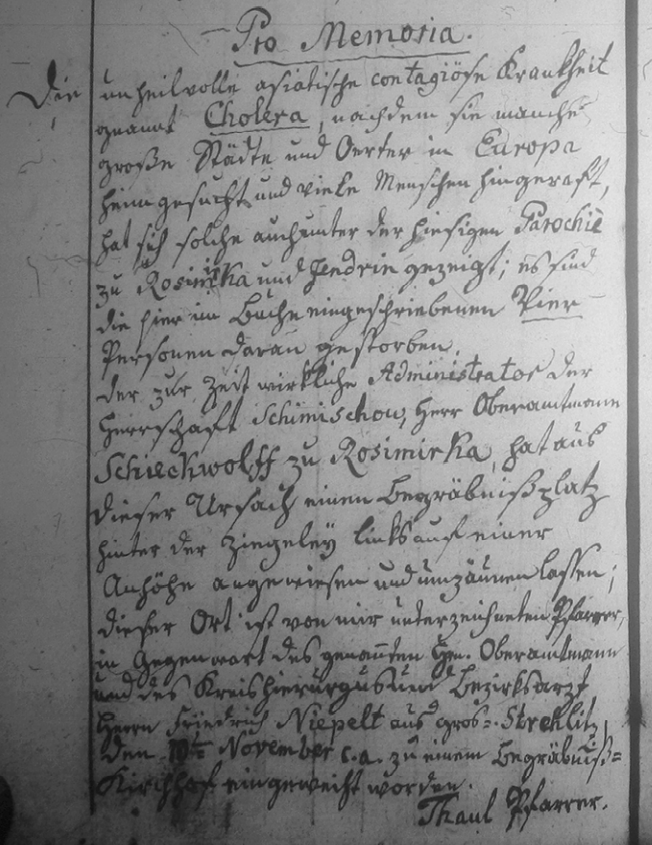 Pro Memoria.
Die unheilvolle asiatische contagiöse Krankheit
genannt Cholera, nachdem sie manche
große Städte und Oerter in Europa
heimgesucht und viele Menschen hingeraft,
hat sich solche auch unter der hiesigen Parochie
zu Rosimirka und Jendrin gezeigt; es sind
die hier im Buche eingeschriebenen Vier
Personen daran gestorben.
Der zur Zeit wirkliche Administrator der
Herrschaft Schimischow, Herr Oberamtmann
Schieckwolff zu Rosimirka, hat aus
dieser Ursach einen Begräbnißplatz
hinter der Ziegeley links auf einer
Anhöhe angewiesen und umzäunen lassen;
dieser Ort ist von mir unterzeichneten Pfarrer,
in Gegenwart des genannten Hrn. Oberamtmann
und des Kreischierurgus und Bezirksarzt
Herrn Friedrich Niepelt aus Gros-Strehlitz,
den November c.a. zu einem Begräbniß-
Kirchhof eingeweiht worden.
Thaul Pfarrer.